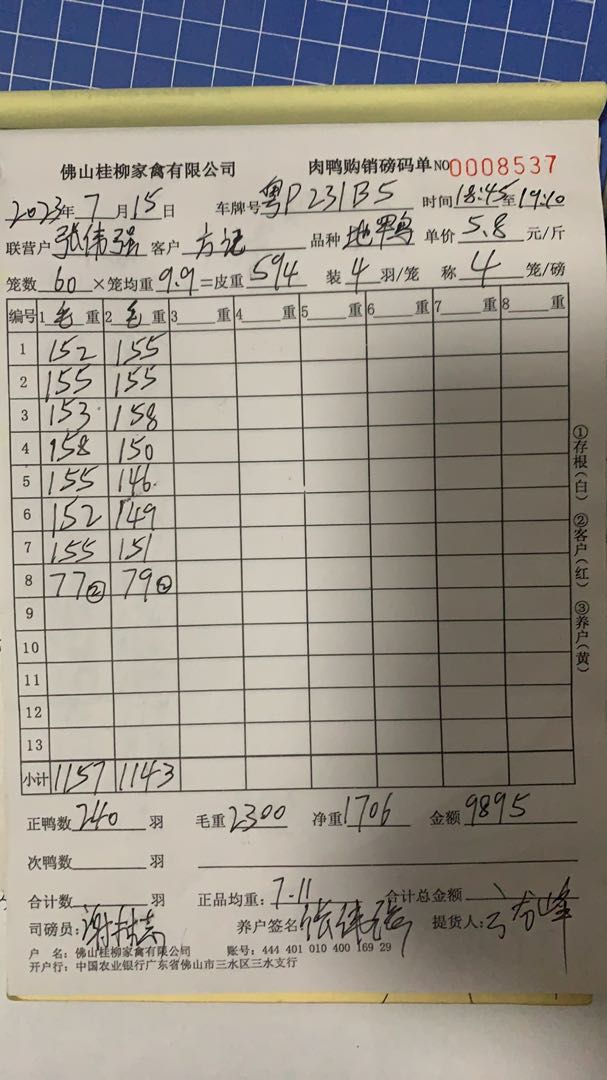 佛山桂柳家禽有限公司 肉鸭购销磅码单 NO 0008537
2023年7月15日 车牌号粤P231B5 时间18:45至19:10
联营户张伟强 客户方记 品种地鸭 单价5.8元/斤
笼数60×笼均重9.9=皮重594 装4羽/笼 称4笼/磅
编号 1毛重 2毛重 3重 4重 5重 6重 7重 8重
1 152 155
2 155 155
3 153 158
4 158 150
5 155 146
6 152 149
7 155 151
8 77② 79②
9
10
11
12
13
小计 1157 1143
①存根(白) ②客户(红) ③养户(黄)
正鸭数240羽 毛重2300 净重1706 金额9895
次鸭数 羽
合计数 羽 正品均重:7.11 合计总金额
司磅员: 养户签名张伟强 提货人:
户 名:佛山桂柳家禽有限公司 账号:444 401 010 400 169 29
开户行:中国农业银行广东省佛山市三水区三水支行